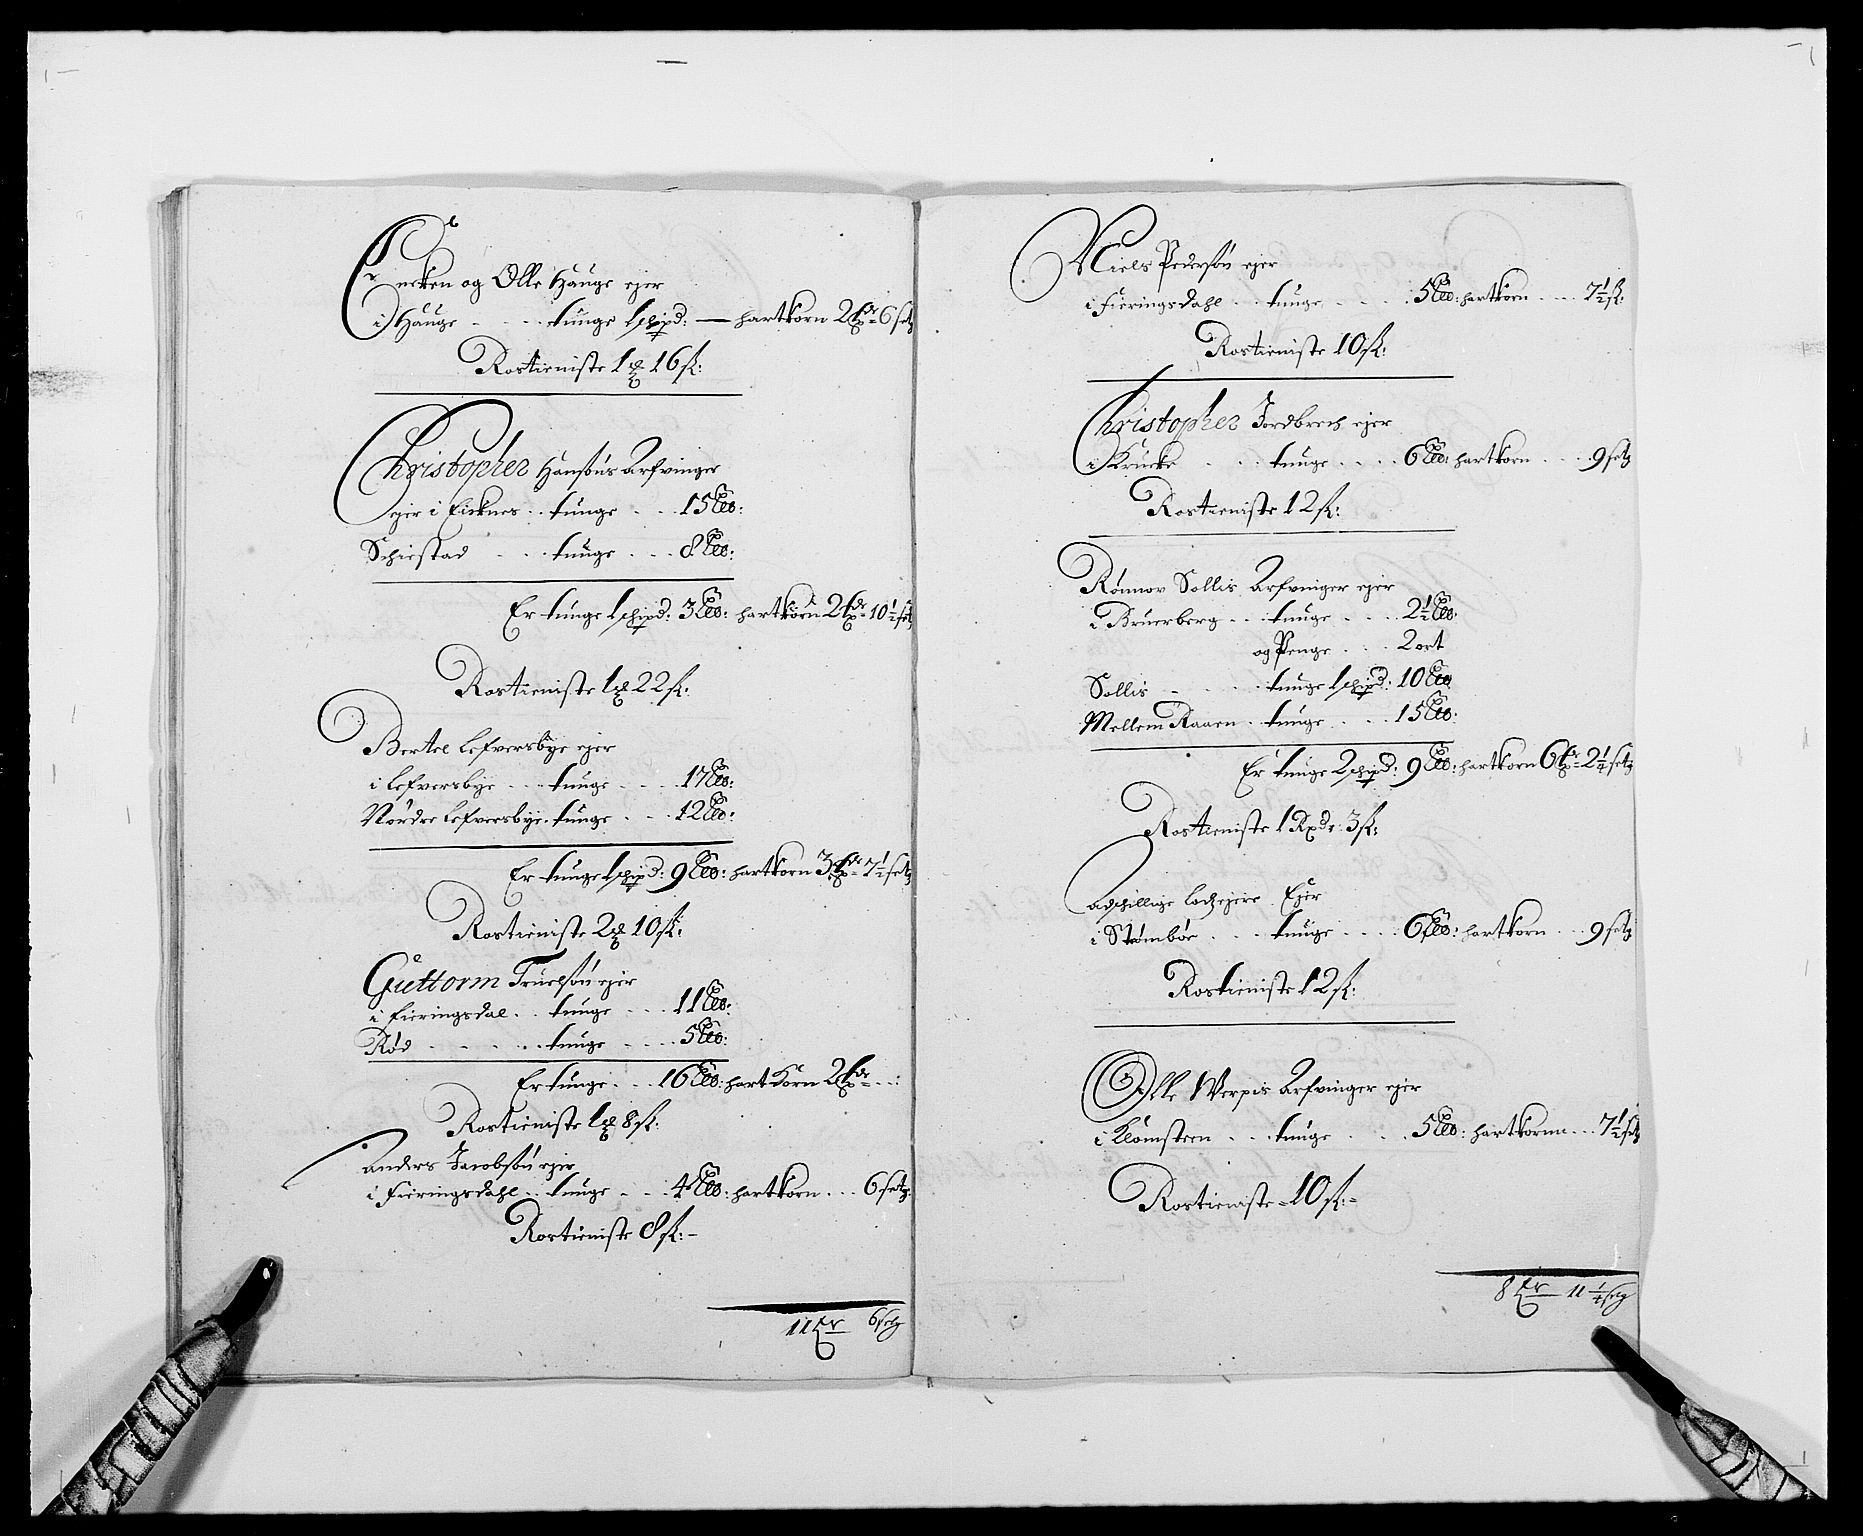 og Olle Hauge ejer
i Hauge - - - tunge 1 schipd: — hartkorn 2 6 setg
Rostieniste 1 16 sk:
Christopher Hansøns Arfvinger
ejer i Eicknes . . tunge . . . 15 :
Schiestad . . . tunge . . . 8 :
Er tunge 1 schipd: 3 : hartkorn 2 10½ set
Rostieniste 1 22 sk:
Bertel Lefversbye ejer
i Lefversbye . . . tunge . . . 17 :
Nordre Lefversbye . tunge . . . 12 :
Er tunge 1 schipd: 9 : hartkorn 3 7½ setg
Rostieniste 2 10 sk:
Guttorm Truelsøn ejer
i Fieringsdal . . tunge . . . 11 :
Rød - - - . . tunge . . . . 5 :
Er tunge . . . 16 : hart Korn 2 - - :
Rostieniste 1 8 sk:
Anders Jacobsøn ejer
i Fieringsdahl . . tunge . . . 4 : hartkorn . . . 6 setg
Rostieniste 8 sk: -
11 6 setg
Niels Pedersøn ejer
i Fieringsdahl . . tunge . . . . 5 : hartkorn . . . 7½ sk:
Rostieniste 10 sk:
Christopher ejer
i Krucke . . . . tunge . . . . 6 : hartkorn . . . 9 setg
Rostieniste 12 sk:
Rønnov Sollis Arfvinger ejer
i Bruerberg . . . tunge . . . . 2½ :
og Penge . . . 2 ort
Sollis - . . . . tunge 1 schipd: 10
Mellem Raaen . . tunge . . . . 15 :
Er tunge 2 schipd: 9 : hartkorn 6 2¼ setg
Rostieniste 1 Rxdr: 3 sk:
Adschillige Lodzejere Ejer
i Strømbøe . . . . tunge . . . . 6 : hartkorn . . . 9 setg
Rostieniste 12 sk:
Olle Werpis Arfvinger ejer
i Klomsteen . . . tunge . . . . 5 : hartkornn . . . 7½ set
Rostieniste - 10 sk: -
8 11¼ setg